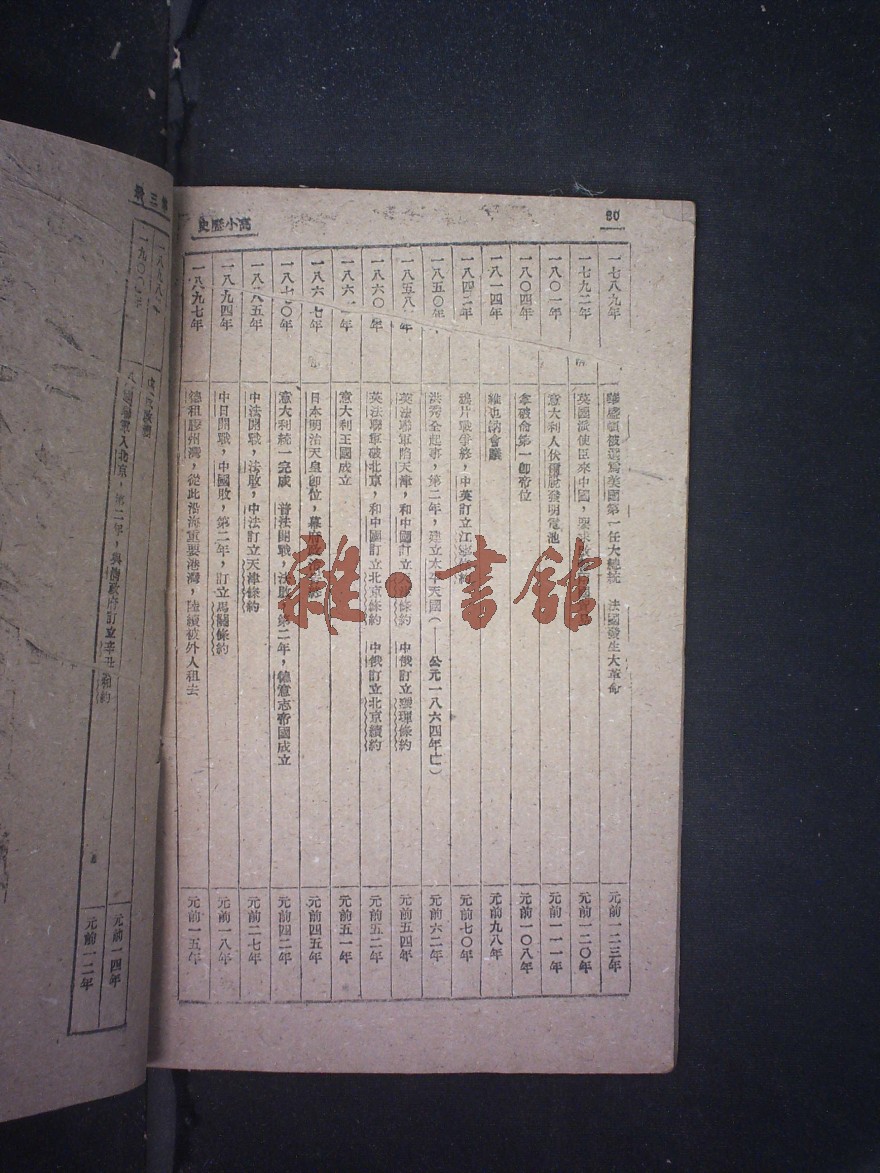 80
高小歷史
一七八九年 華盛頓被選爲美國第一任大總統 法國發生大革命 元前一二三年
一七九二年 英國派使臣來中國，要求 元前一二〇年
一八〇一年 意大利人伏爾脫發明電池 元前一一一年
一八〇四年 拿破侖第一卽帝位 元前一〇八年
一八一四年 維也納會議 元前九八年
一八四二年 鴉片戰爭終，中英訂立江寧條約 元前七〇年
一八五〇年 洪秀全起事，第二年，建立太平天國（——公元一八六四年亡） 元前六二年
一八五八年 英法聯軍陷天津，和中國訂立天津條約 中俄訂立璦琿條約 元前五四年
一八六〇年 英法聯軍破北京，和中國訂立北京條約 中俄訂立北京續約 元前五二年
一八六一年 意大利王國成立 元前五一年
一八六七年 日本明治天皇卽位，幕府政治終 元前四五年
一八七〇年 意大利統一完成 普法開戰，法敗，第二年，德意志帝國成立 元前四二年
一八八五年 中法開戰，法敗，中法訂立天津條約 元前二七年
一八九四年 中日開戰，中國敗，第二年，訂立馬關條約 元前一八年
一八九七年 德租膠州灣，從此沿海重要港灣，陸續被外人租去 元前一五年
第三册
一八九八年 戊戌政變 元前一四年
一九〇〇年 八國聯軍入北京，第二年，與滿政府訂立辛丑和約 元前一二年
雜·書館